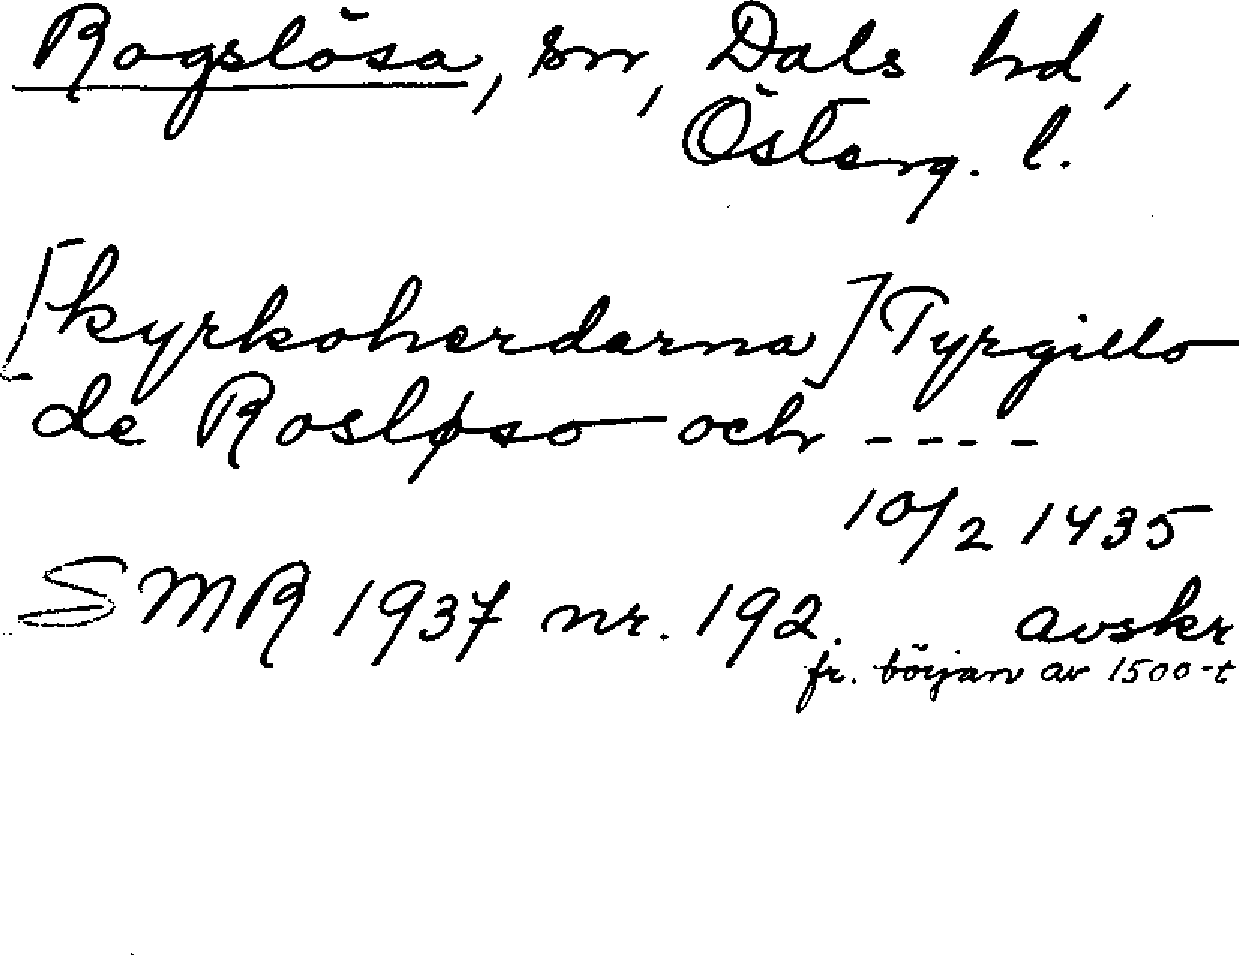 Rogslösa, sn, Dals hd,
Österg. l.
[kyrkoherdarna] Tyrgillo
de Rosløso och ----
10/2 1435
SMR 1937 nr. 192. avskr
fr. början av 1500-t